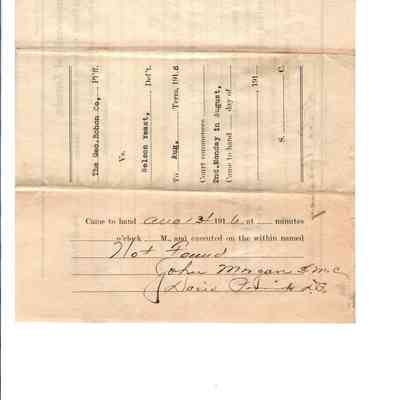 The Geo.Bohon Co, Pl'ff.
Vs.
Nelson Yeast, Def't.
To Aug, Term, 1916
Court commences
2nd.Monday in August,
Came to hand day of
, 191
S. C.
Came to hand Aug 3 1916 at minutes
o'clock M., and executed on the within named
Not Found
John Morgan S.M.C.
By Davis D.S.